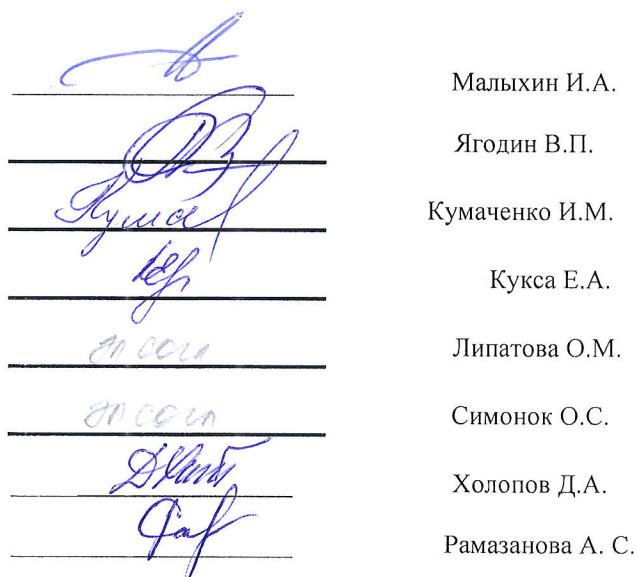 Малыхин И.А.
Ягодин В.П.
Кумаченко И.М.
Кукса Е.А.
эл согл Липатова О.М.
эл согл Симонок О.С.
Холопов Д.А.
Рамазанова А. С.